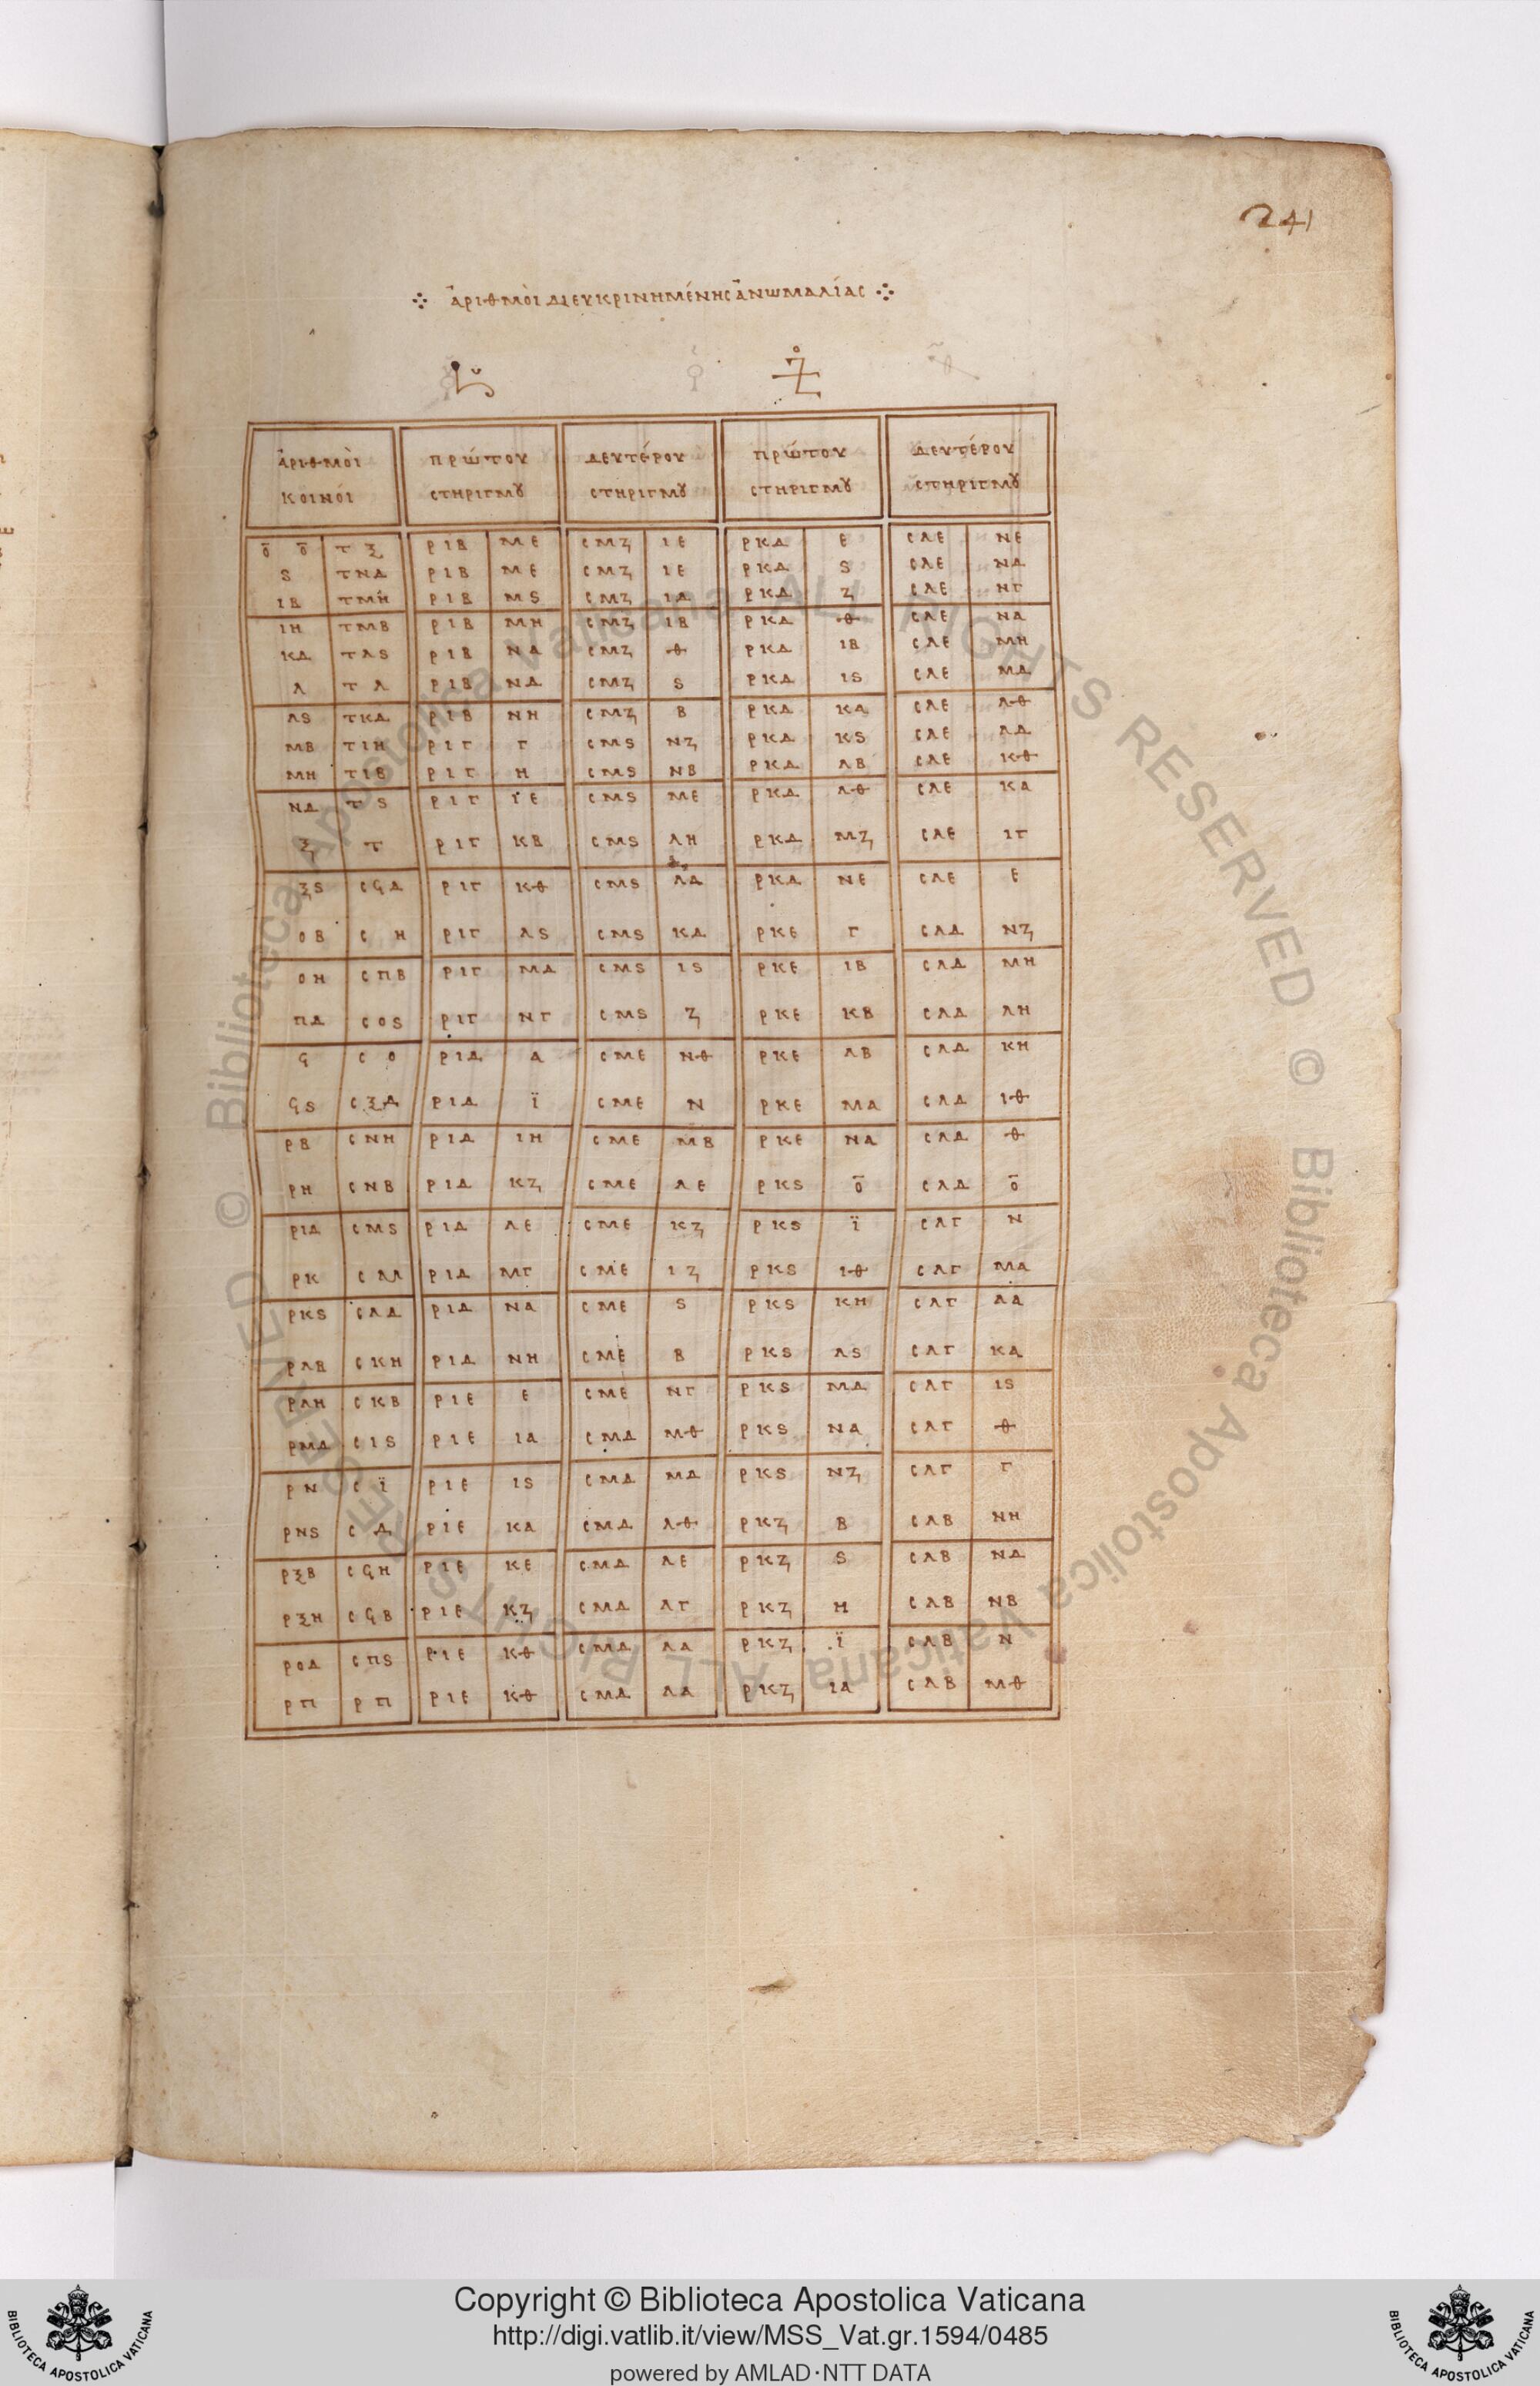 241
ἀριθμοὶ διευκρινημένης ἀνωμαλίας
ἀριθμοὶ πρώτου δευτέρου πρώτου δευτέρου
κοινοί στηριγμοῦ στηριγμοῦ στηριγμοῦ στηριγμοῦ
ο ο τξ ριβ με σμζ ιε ρκδ ε σλε νε
ϛ τνδ ριβ με σμζ ιε ρκδ ϛ σλε νδ
ιβ τμη ριβ μϛ σμζ ιδ ρκδ ζ σλε νγ
ιη τμβ ριβ μη σμζ ιβ ρκδ θ σλε να
κδ τλϛ ριβ να σμζ θ ρκδ ιβ σλε μη
λ τλ ριβ νδ σμζ ϛ ρκδ ιϛ σλε μδ
λϛ τκδ ριβ νη σμζ β ρκδ κα σλε λθ
μβ τιη ριγ γ σμϛ νζ ρκδ κϛ σλε λδ
μη τιβ ριγ η σμϛ νβ ρκδ λβ σλε κθ
νδ τϛ ριγ ιε σμϛ με ρκδ λθ σλε κα
ξ τ ριγ κβ σμϛ λη ρκδ μζ σλε ιγ
ξϛ σϟδ ριγ κθ σμϛ λδ ρκδ νε σλε ε
οβ σ η ριγ λϛ σμϛ κδ ρκε γ σλδ νζ
οη σπβ ριγ μδ σμϛ ιϛ ρκε ιβ σλδ μη
πδ σοϛ ριγ νγ σμϛ ζ ρκε κβ σλδ λη
ϟ σο ριδ α σμε νθ ρκε λβ σλδ κη
ϟϛ σξδ ριδ ϊ σμε ν ρκε μα σλδ ιθ
ρβ σνη ριδ ιη σμε μβ ρκε να σλδ θ
ρη σνβ ριδ κζ σμε λε ρκϛ ο σλδ ο
ριδ σμϛ ριδ λε σμε κζ ρκϛ ϊ σλγ ν
ρκ ριδ μγ σμε ιζ ρκϛ ιθ σλγ μα
ρκϛ σλδ ριδ να σμε ϛ ρκϛ κη σλγ λα
ρλβ σκη ριδ νη σμε β ρκϛ λϛ σλγ κα
ρλη σκβ ριε ε σμε νγ ρκϛ μδ σλγ ιϛ
ρμδ σιϛ ριε ια σμδ μθ ρκϛ να σλγ θ
ρν σϊ ριε ιϛ σμδ μδ ρκϛ νζ σλγ γ
ρνϛ σδ ριε κα σμδ λθ ρκζ β σλβ νη
ρξβ σϟη ριε κε σμδ λε ρκζ ϛ σλβ νδ
ρξη σϟβ ριε κζ σμδ λγ ρκζ η σλβ νβ
ροδ σπϛ ριε κθ σμδ λα ρκζ ϊ σλβ ν
ρπ ρπ ριε κθ σμδ λα ρκζ ια σλβ μθ
© Biblioteca Apostolica Vaticana ALL RIGHTS RESERVED © Biblioteca Apostolica Vaticana ALL RIGHTS RESERVED
Copyright © Biblioteca Apostolica Vaticana
http://digi.vatlib.it/view/MSS_Vat.gr.1594/0485
powered by AMLAD·NTT DATA
BIBLIOTECA APOSTOLICA VATICANA
BIBLIOTECA APOSTOLICA VATICANA